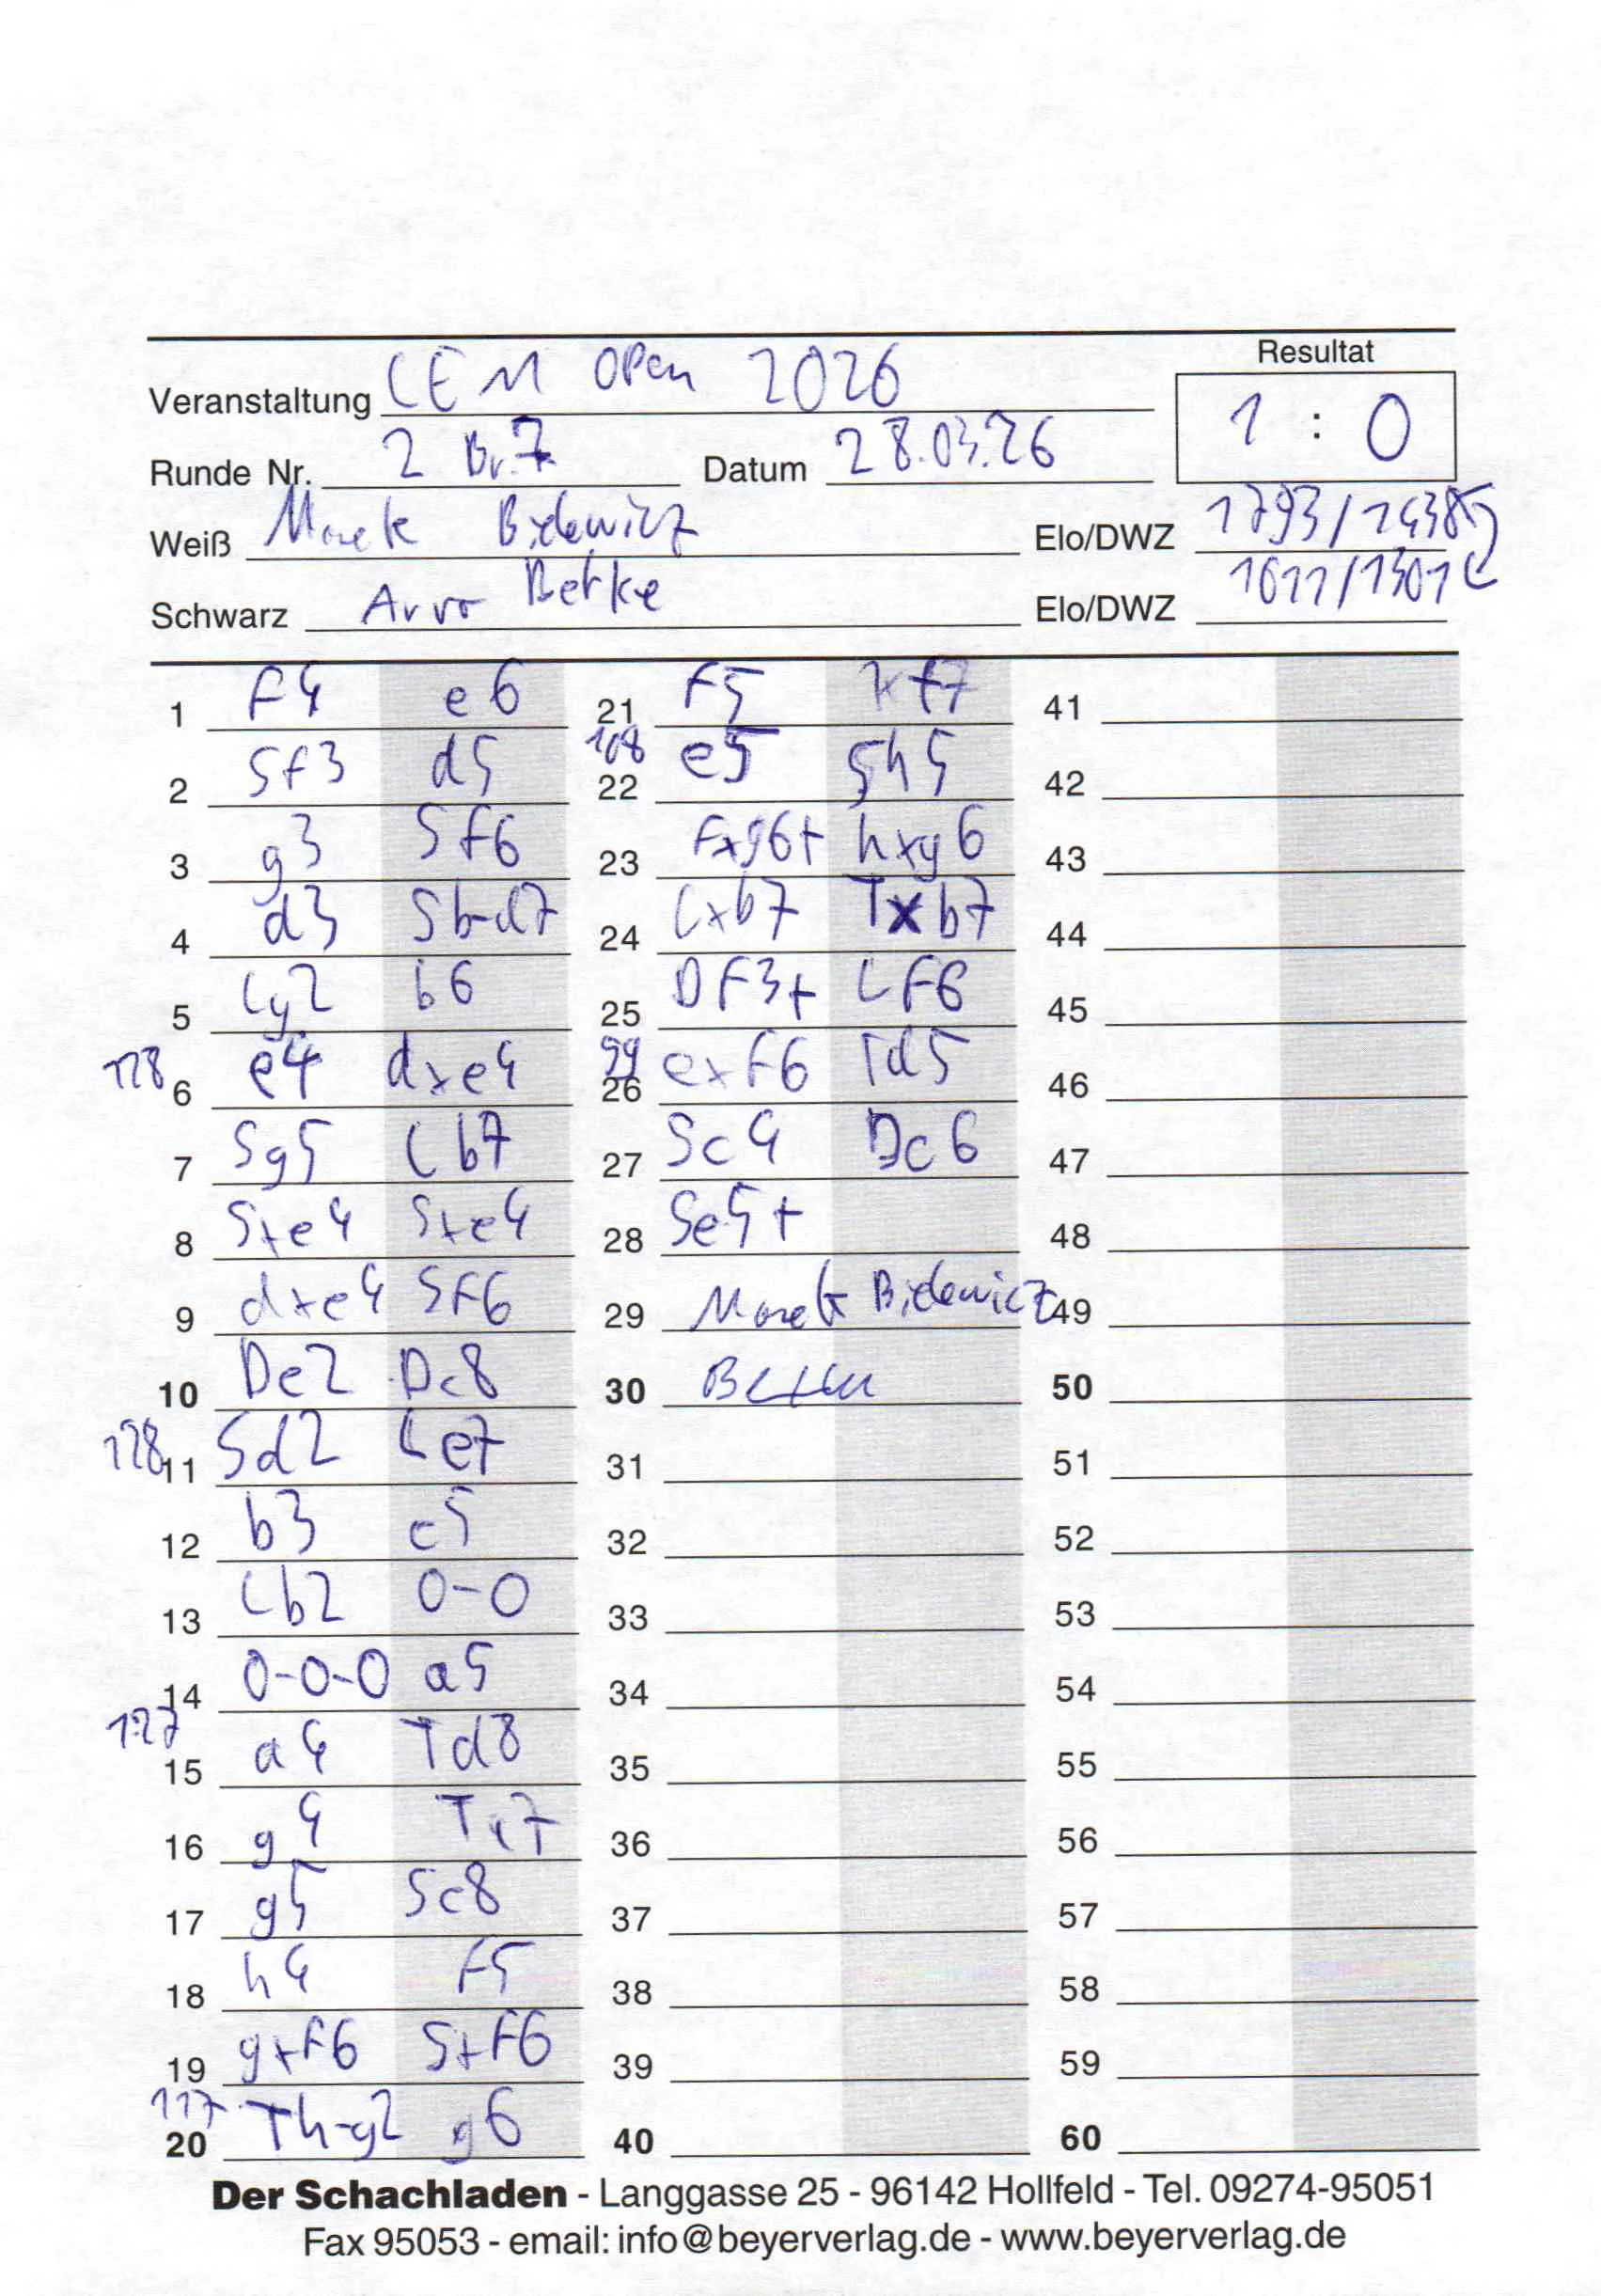 Resultat
Veranstaltung CEM Open 2026
1 : 0
Runde Nr. 2 Br.7 Datum 28.03.26
Weiß Marek Bielewicz Elo/DWZ 1793/1438
Schwarz Arvo Betke Elo/DWZ 1611/1301
1 F4 e6 21 F5 Kf7 41
2 Sf3 d5 108 22 e5 Sh5 42
3 g3 Sf6 23 Fxg6+ hxg6 43
4 d3 Sb-d7 24 Lxb7 Txb7 44
5 Lg2 b6 25 DF3+ LF6 45
128 6 e4 dxe4 99 26 exF6 Td5 46
7 Sg5 Lb7 27 Sc4 Dc6 47
8 Sxe4 Sxe4 28 Se5+ 48
9 dxe4 SF6 29 Marek Bielewicz 49
10 De2 Dc8 30 50
128 11 Sd2 Le7 31 51
12 b3 c5 32 52
13 Lb2 0-0 33 53
14 0-0-0 a5 34 54
127 15 a4 Td8 35 55
16 g4 36 56
17 g5 Se8 37 57
18 h4 F5 38 58
19 gxF6 SxF6 39 59
117 20 Th-g1 g6 40 60
Der Schachladen - Langgasse 25 - 96142 Hollfeld - Tel. 09274-95051
Fax 95053 - email: info@beyerverlag.de - www.beyerverlag.de